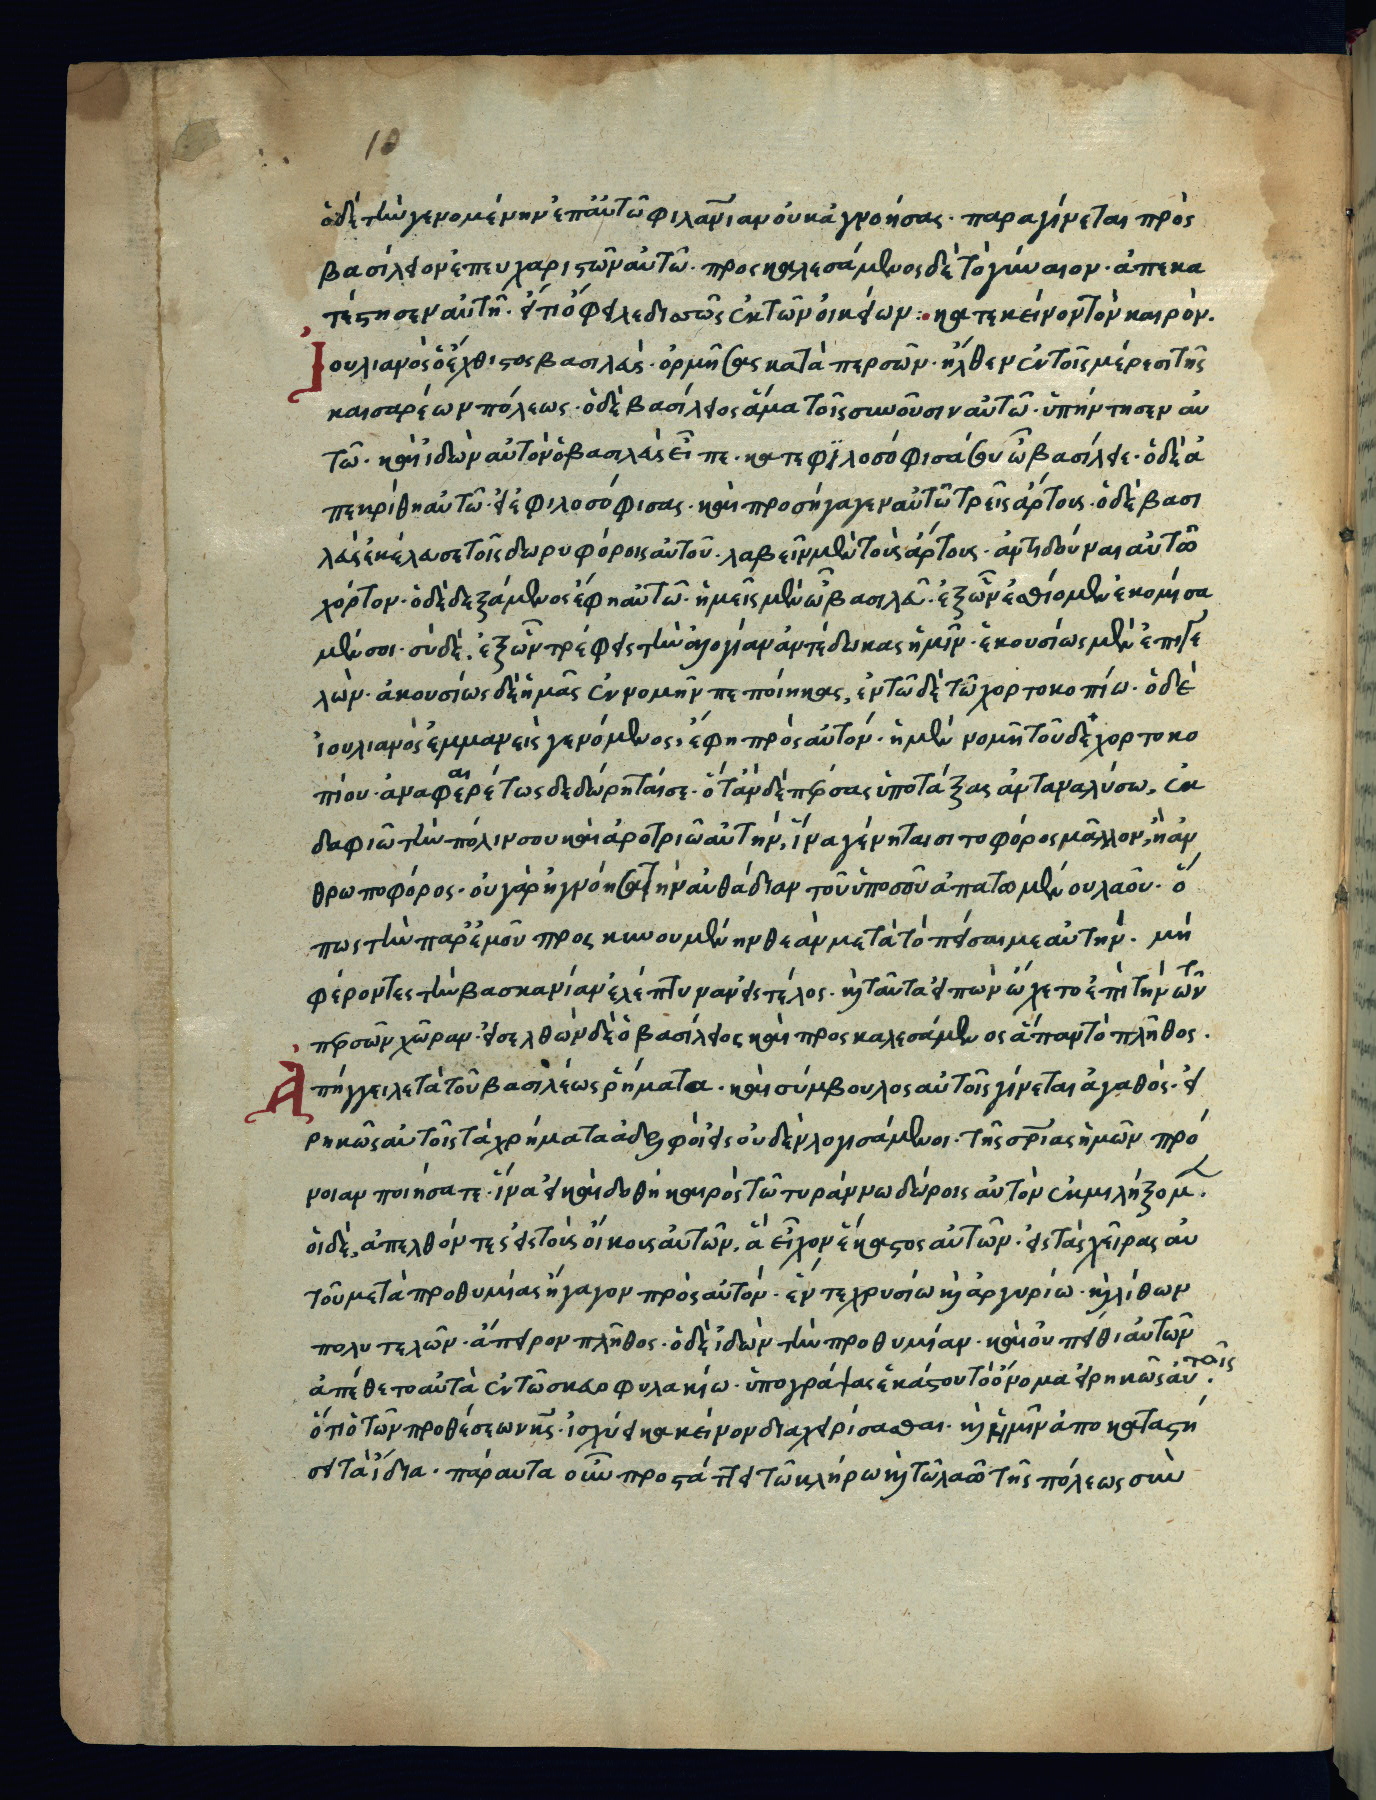 10
ὁ δὲ τὴν γενομένην ἐπ αὐτῶ φιλανίαν οὐκ ἀγνοήσας· παραγίνεται πρὸς
βασίλειον ἐπευχαριστῶν αὐτῶ· προσκαλεσάμενος δὲ τὸ γύναιον· ἀπεκα
τέστησεν αὐτῆ· εἴ τι ὄφειλε δισσῶς ἐκ τῶν οἰκείων : κατ εκεῖνον τὸν καιρὸν.
Ιουλιανὸς ὁ ἔχθιστος βασιλεὺς· ὁρμήσας κατὰ περσῶν· ἦλθεν ἐν τοῖς μέρεσι τῆς
καισαρέων πόλεως· ὁ δὲ βασίλειος ἅμα τοῖς συνοῦσιν αὐτῶ· ὑπήντησεν αὐ
τῶ· καὶ ἰδὼν αὐτὸν ὁ βασιλεὺς εἶπε· κατεφϊλοσόφισά σου ὦ βασίλειε· ὁ δὲ ἀ
πεκρίθη αὐτῶ· εἰ ἐφιλοσόφισας· καὶ προσήγαγεν αὐτῶ τρεῖς ἄρτους· ὁ δὲ βασι
λεὺς ἐκέλευσε τοῖς δωρυφόροις αὐτοῦ· λαβεῖν μὲν τοὺς ἄρτους· ἀντιδοῦναι αὐτῶ
χόρτον· ὁ δὲ δεξάμενος ἔφη αὐτῶ· ἡμεῖς μὲν ὦ βασιλεῦ· ἐξ ὧν ἐσθίομεν ἐκομίσα
μέν σοι· σὺ δὲ, ἐξ ὧν τρέφεις τὴν ἀλογίαν ἀντέδωκας ἡμῖν· ἑκουσίως μὲν ἐπιγε
λῶν· ἀκουσίως δὲ ἡμᾶς ἐν νομῆν πεποίηκας, ἐν τῶ δὲ τῶ χορτοκοπίω· ὁ δὲ
ἰουλιανὸς ἐμμανεὶς γενόμενος, ἔφη πρὸς αὐτόν· ἡ μὲν νομὴ τοῦ δὲ χορτοκο
πίου· αναφαιρέτως δεδώρηταί σε· ὅταν δὲ πέρσας ὑποτάξας ἀνταναλύσω, ἐκ
δαφιῶ τὴν πόλιν σου καὶ ἀροτριῶ αὐτήν, ἵνα γένηται σιτοφόρος μᾶλλον, ἢ ἀν
θρωποφόρος· οὐ γὰρ ἠγνόησα τὴν αὐθάδιαν τοῦ ὑπο σοῦ ἀπατωμένου λαοῦ· ὅ
πως τὴν παρ ἐμοῦ προσκυνουμένην θεὰν μετὰ τὸ πεῖσαι με αὐτήν· μὴ
φέροντες τὴν βασκανίαν ἐλέπτυναν εἰς τέλος· καὶ ταῦτα εἰπὼν ᾤχετο ἐπὶ τὴν τῶν
περσῶν χῶραν· εἰσελθὼν δὲ ὁ βασίλειος καὶ προσκαλεσάμενος ἅπαν τὸ πλῆθος.
Ἀπήγγειλε τὰ τοῦ βασιλέως ῥήματα· καὶ σύμβουλος αὐτοῖς γίνεται ἀγαθός· εἰ
ρηκὼς αὐτοῖς τὰ χρήματα ἀδελφοὶ εἰς οὐδὲν λογισάμενοι· τῆς σρίας ἡμῶν πρό
νοιαν ποιήσατε· ἵνα εἰ καὶ δοθῆ καιρὸς τῶ τυράννω δώροις αὐτὸν ἐκμιλήξομ.
οἱ δὲ, ἀπελθόντες εἰς τοὺς οἴκους αὐτῶν, ἃ εἶχον ἕκαστος αὐτῶν· εἰς τὰς χεῖρας αὐ
τοῦ μετὰ προθυμίας ἤγαγον πρὸς αὐτόν· ἔν τε χρυσίω καὶ ἀργυρίω· καὶ λίθων
πολυτελῶν· ἄπειρον πλῆθος· ὁ δὲ ἰδὼν τὴν προθυμίαν· καὶ εὐπείθι αὐτῶν
ἀπέθετο αὐτὰ ἐν τῶ σκευοφυλακίω· ὑπογράψας ἑκάστου τὸ ὄνομα εἰρηκὼς αὐτοῖς.
ὅτι ὁ τῶν προθέσεων κς· ἰσχύει κακεῖνον διαχειρίσασθαι· καὶ ἡμῖν ἀποκαταστή
σει τὰ ἴδια· πάραυτα οὖν προστάττει τῶ κλήρω καὶ τῶ λαῶ τῆς πόλεως σὺν